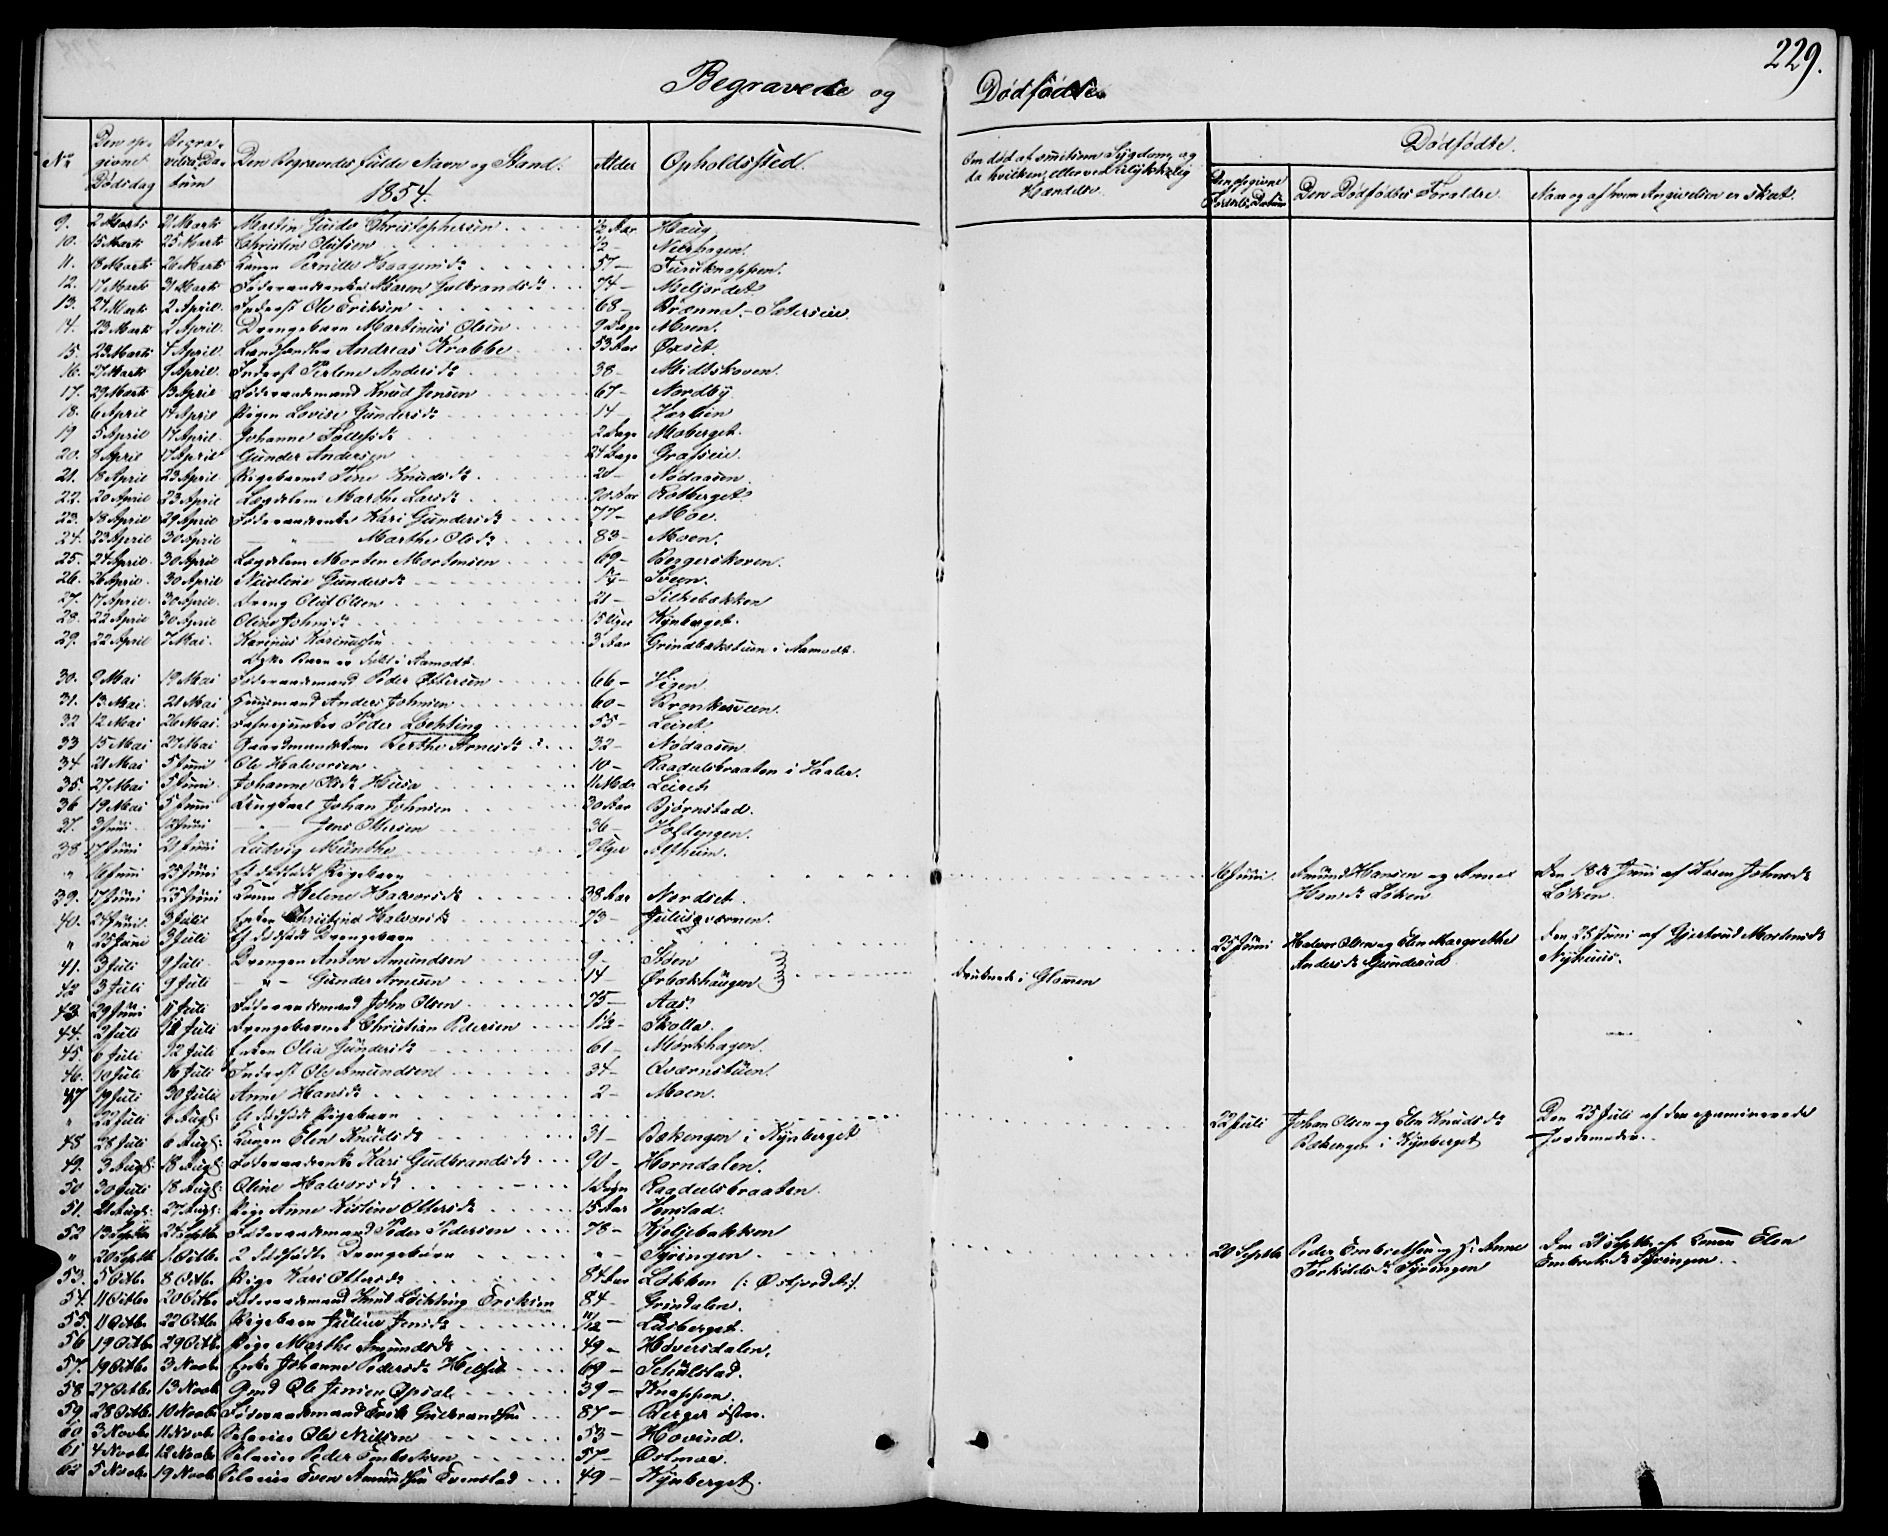 229.
Begravede og Dødfødte
Dødfødte.
No Den opgivne Dødsdag Begravelses Datum Den Begravedes fulde Navn og Stand. 1854. Alder Opholdssted. Om død af smitsom Sygdom, og da hvilken, eller ved Ulykkelig Hændelse. Den opgivne Fødsels Datum Den Dødfødtes Forældre. Naar og af hvem Angivelsen er skeet.
9. 2 Marts 21 Marts Martin Guido Christophersen ½ Aar Haug
10. 15 Marts 25 Marts Christin Olufsen ½ — Nerhagen.
11. 18 Marts 26 Marts Konen Pernille Haagensdr 57 — Furuknappen.
12. 17 Marts 31 Marts Føderaadsenke Maren Gulbrandsdr 74 — Meljordet
13. 24 Marts 2 April. Inderst Ole Eriksen 68 — Brænna — Sæterseie.
14. 23 Marts 2 April. Drengebarn Martinus Olsen 9 Dage Moen.
15. 23 Marts 4 April. Landhandler Andreas Krabbe 53 Aar Øxset.
16. 27 Marts 9 April. Inderst Perlene Andersdr 38 — Midtskoven.
17. 29 Marts 13 April Føderaadsmand Knud Jensen 67 — Nordby
18. 6 April 14 April Pigen Lovise Gundersdr 14 —
19 5 April 17 April Johanne Tollefsdr 2 Dage Moberget.
20. 8 April 17 April Gunder Andersen 24 Dage Grafseie.
21. 18 April 23 April Pigebarnet Tine Knudsdr 20 — Nødaasen
22. 20 April 23 April Lægdslem Marthe Larsdr 90 Aar Rotberget
23. 18 April 29 April Føderaadsenke Kari Gundersdr 77 — Moe.
24. 23 April 30 April — " — Marthe Olsdr 83 — Moen.
25. 24 April. 30 April Lægdslem Morten Mortensen 69 — Beggerskoven.
26. 26 April. 30 April Gundersdr 14 — Sveen.
27. 17 April. 30 April. Dreng Oluf Olsen 21 — Silkebækken
28. 22 April 30 April. Oline Johnsdr 15 Uger Kynberget.
29. 22 April 7 Mai. Karinus Karinussen 3 Aar Grindbækstuen i Aamodt.
Dette Barn er født i Aamodt.
30. 9 Mai 19 Mai Føderaadsmand Peder Ottersen 66 — Vigen
31. 13. Mai. 21 Mai Huusmand Anders Johnsen 60 — Kronkesveen.
32 12 Mai 26 Mai. Peder Lochting 55 — Leiret.
33 15 Mai 27 Mai Gaardmandskone Berthe Arnesdr 32 — Nødaasen
34 21 Mai 5 Juni Ole Halvorsen 10 — Raadelsbraaten i Vaaler.
35. 27 Mai 5 Juni Johanne Olsdr Husa 11 Mdr Leiret
36 19 Mai 5 Juni Ungkarl Johan Johnsen 30 Aar Bjørnstad.
37. 3 Juni 12 Juni — " — Jens Ottersen 36 — Voldengen.
38. 17 Juni 21 Juni Ludvig Munthe 9 Uger Alfheim.
" 16 Juni 25 Juni Et dødfødt Pigebarn 16 Juni. Amund Hansen og Anne Hansdr Løken Den 18de Juni af Karen Johnsdr Løken.
39. 17 Juni 25 Juni Konen Helene Halvorsdr 38 Aar Nordset.
40. 24 Juni. 3 Juli Enken Christine Halvorsdr 73 — Juliusværnen.
" 25 Juni 3 Juli Et dødfødt Drengebarn 25 Juni Halvor Olsen og Elen Margrethe Andersdr Gunderud Den 26 Juni af Gjertrud Mortensdr Nyhuus.
41. 3 Juli 9 Juli. Drengen Anton Amundsen 9 — Moen
42 3 Juli 9 Juli — " — Gunder Arnesen 14 — Ørbækhaugen Druknede i Glomen
43. 29 Juni 11 Juli Føderaadsmand John Olsen 75 — Aas.
44. 2 Juli 12 Juli Drengebarnet Christian Pedersen 1½ — Skolla.
45. 6 Juli 12 Juli Enken Olia Gundersdr 61 — Mørkhagen.
46. 10 Juli 16 Juli Inderst Ole Amundsen 34 — Qværnstuen.
47 19 Juli 30 Juli Anne Hansdr 2 — Moen.
" 22 Juli 6 Augl. Et dødfødt Pigebarn 22 Juli Johan Olsen og Elen Knudsdr Bækengen i Kynberget Den 25 Juli af den examinerede Jordemoder.
48. 28 Juli 6 Augl: Konen Elen Knudsdr 31 — Bækengen i Kynberget
49. 3 Augl. 18 Augl: Føderaadsenke Kari Gudbrandsdr 90 — Horndalen.
50 30 Juli 18 Augl: Oline Halvorsdr 1 Døgn Raadelsbraaten.
51. 21 Augl. 27 Augl: Pige Anne Kirstine Ottersdr 15 Aar Vonstad.
52 13 Septbr 24 Septbr Føderaadsmand Peder Pedersen 78 — Kjeljebakken
" 20 Septbr 1 Octbr. 2 dødfødte Drengebørn " — Syringen. 20 Septbr Peder Embretsen og H: Anne Torkildsdr Syringen Den 21 Septbr af Konen Elen Embretsdr Syringen.
53. 5 Octbr. 8 Octbr. Pige Kari Ottersdr 84 Aar Løkken
54. 11 Octbr. 20 Octbr. Føderaadsmand Knut Lochting Eriksen 84 — Grindalen.
55. 11 Octbr. 22 Octbr. Pigebarn Juliane Jensdr 11/12 — Lusberget.
56 19 Octbr. 29 Octbr. Pige Marthe Amundsdr 49 — Høversdalen.
57. 19 Octbr. 3 Novbr. Enke Johanne Pedersdr Helset 69 — Schulstad.
58 27 Octbr. 13 Novbr Gmd Ole Jensen Opsal 39 — Knappen.
59 28 Octbr. 10 Novbr. Føderaadsmand Erik Gulbrandsen 87 — Berger østre.
60 3 Novbr. 11 Novbr. Selveier Ole Nilsen 53 — Hovind.
61 4 Novbr. 12 Novbr. Selveier Peder Embretsen 57 — Østmoe.
62 5 Novbr. 19 Novbr. Selveier Even Amundsen Evenstad 49 — Kynberget.